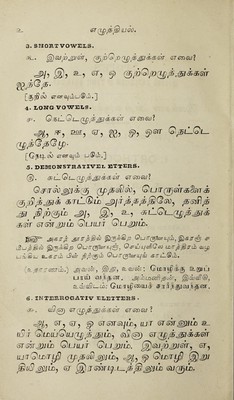 ௨. எழுத்தியல்.
3. SHORT VOWELS.
௩. இவற்றுள், குற்றெழுத்துக்கள் எவை?
அ, இ, உ, எ, ஒ குற்றெழுத்துக்கள்
ஐந்தே.
[குறில் எனவும்படும்.]
4. LONG VOWELS.
௪. நெட்டெழுத்துக்கள் எவை?
ஆ, ஈ, ஊ, ஏ, ஐ, ஓ, ஔ நெட்டெ
ழுத்தேழே.
[நெடில் எனவும் படும்.]
5. DEMONSTRATIVE LETTERS.
௫. சுட்டெழுத்துக்கள் எவை?
சொல்லுக்கு முதலில், பொருள்களைக்
குறித்துக் காட்டும் அர்த்தத்திலே, தனித்
து நிற்கும் அ, இ, உ, சுட்டெழுத்துக்
கள் என்றும் பெயர் பெறும்.
அகரந் தூரத்தில் இருக்கிற பொருளையும், இகரஞ் ச
மீபத்தில் இருக்கிற பொருளையும்,
(உதாரணம்.) அவன், இது, உவன்:
6. INTERROGATIVE LETTERS.
௬. வினா எழுத்துக்கள் எவை?
ஆ, எ, ஏ, ஓ எனவும், யா என்னும் உ
யிர் மெய்யெழுத்தும், வினா எழுத்துக்கள்
என்றும் பெயர் பெறும். இவற்றுள், எ,
யா மொழி முதலிலும், ஆ, ஓ மொழி இறு
தியிலும், ஏ இரண்டிடத்திலும் வரும்.